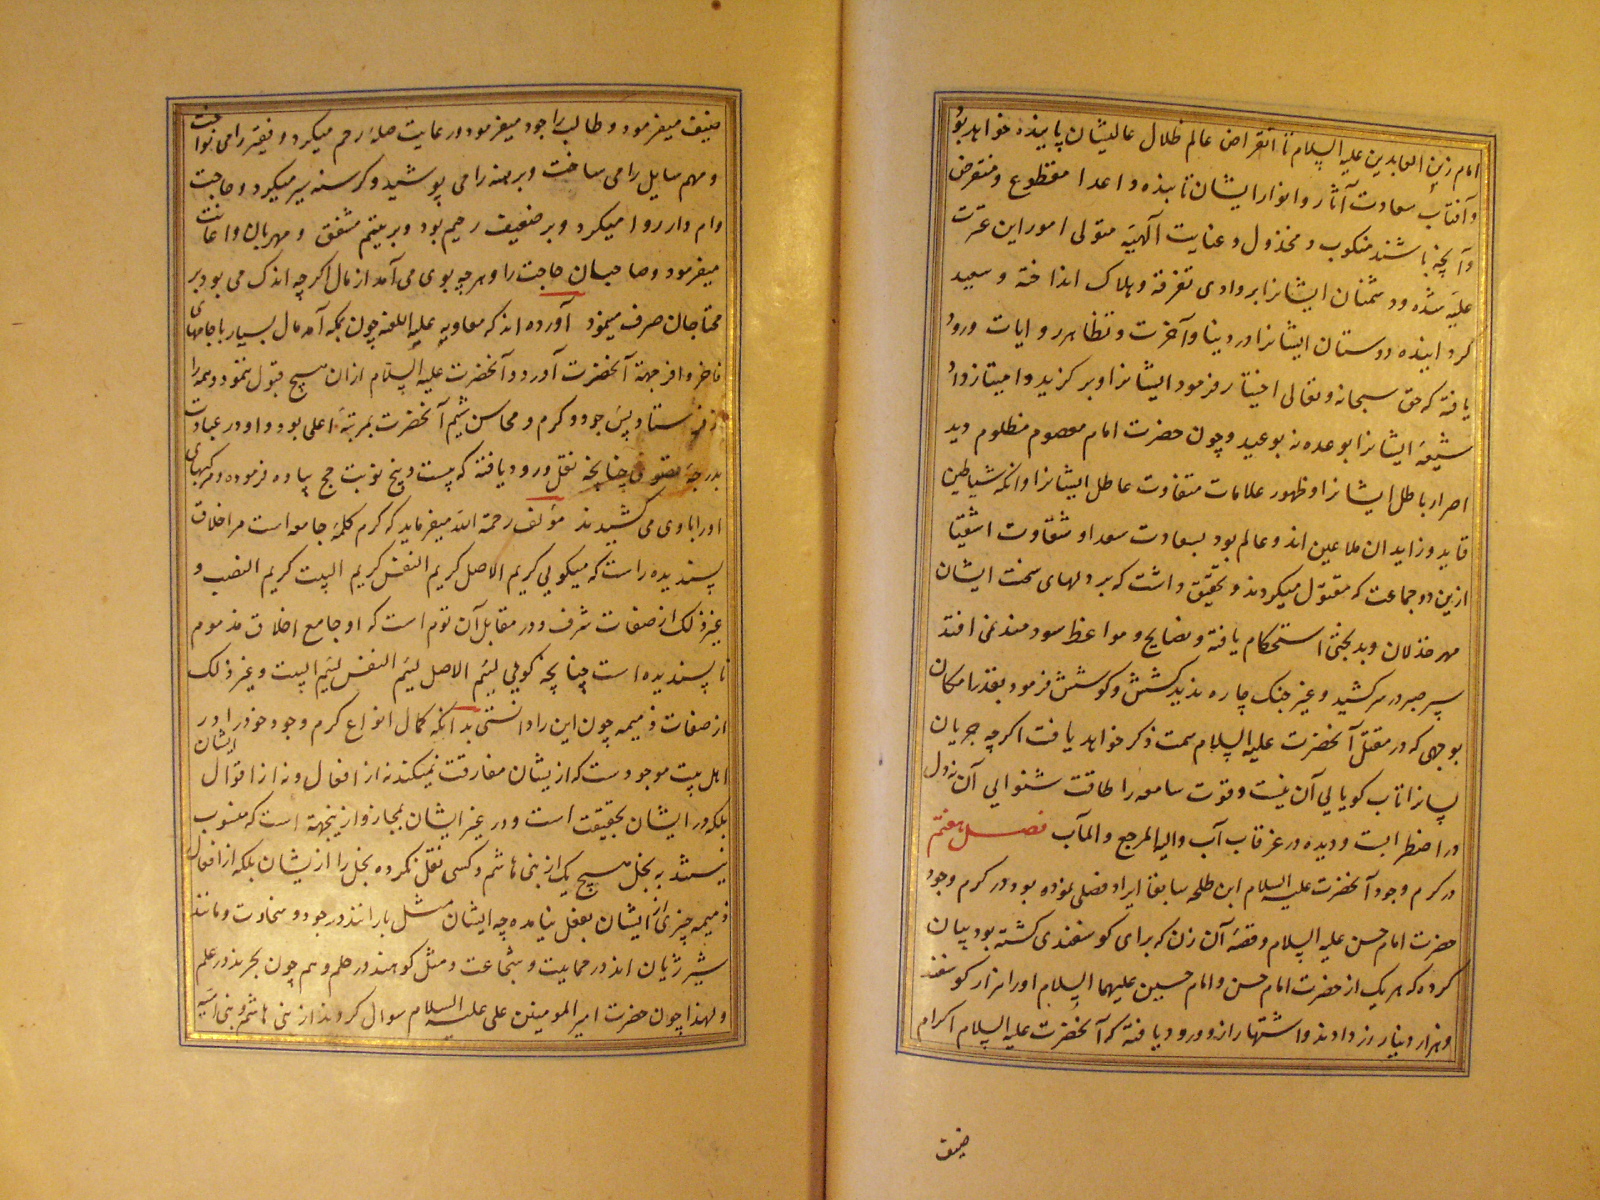 امام زین العابدین علیه السلام تا انقراض عالم ظلال عالیشان پاینده خواهد بود
و آفتاب سعادت آثار و انوار ایشان تابنده و اعدا مقطوع و منقرض
و آنچه باشند منکوب و مخذول و عنایت آلهیه متولی امور این عترت
علیه شده و دشمنان ایشانرا بر وادی تفرقه و هلاک انداخته و سعید
کرداننده دوستان ایشانرا در دنیا و آخرت و تظاهر روایات ورود
یافته که حق سبحانه و تعالی اختیار فرمود ایشانرا و برکزید و امتیاز داد
شیعهٔ ایشانرا بوعده نه بوعید و چون حضرت امام معصوم مظلوم دید
اصرار باطل ایشانرا و ظهور علامات متفاوت عاطل ایشانرا و آنکه شیاطین
قاید و زاید ان ملاعین اند و عالم بود بسعادت سعدا و شقاوت اشقیا
ازین دو جماعت که مقتول میکردند و تحقیق داشت که بر دلهای سخت ایشان
مهر خذلان و بدبختی استحکام یافته و نصایح و مواعظ سودمند نمی افتد
سپر صبر در سر کشید و غیر جنک چاره ندید کشش و کوشش فرمود بقدر امکان
بوجهی که در مقتل آنحضرت علیه السلام سمت ذکر خواهد یافت اکرچه جریان
لسانرا تاب کویایی آن نیست و قوت سامعه را طاقت شنوایی آن نه دل
در اضطرابست و دیده در غرقاب آب و الیه المرجع والمآب فصل هفتم
در کرم و جود آنحضرت علیه السلام ابن طلحه سابقا ایراد فصلی نموده بود در کرم و جود
حضرت امام حسن علیه السلام و قصهٔ آن زن که برای کوسفندی کشته بود بیان
کرده که هر یک از حضرت امام حسن و امام حسین علیهما السلام او را هزار کوسفند
و هزار دینار زر دادند و اشتهار از و ورود یافته که آنحضرت علیه السلام اکرام
ضیف
ضیف میفرمود و طالب را جود میفرمود و رعایت صلهٔ رحم میکرد و فقیر را می نواخت
و مهم سایل را می ساخت و برهنه را می پوشید و کرسنه سیر میکرد و حاجت
وام دار روا میکرد و بر ضعیف رحیم بود و بر یتیم مشفق و مهربان و اعانت
میفرمود و صاحبان حاجت را و هر چه بوی می آمد از مال اکرچه اندک می بود بر
محتاجان صرف مینمود آورده اند که معاویه علیه اللعنه چون بمکه آمد مال بسیار با جامهای
فاخر وافر جهة آنحضرت آورد و آنحضرت علیه السلام ازان هیچ قبول ننمود و همه را
باز فرستاد پس جود و کرم و محاسن شیم آنحضرت بمرتبهٔ اعلی بود و او در عبادت
بدرجهٔ قصوی چنانچه نقل ورود یافته که بیست و پنج نوبت حج پیاده فرموده و مرکبهای
او را با وی می کشیدند مؤلف رحمة الله میفرماید که کرم کلمهٔ جامعه است مر اخلاق
پسندیده راست که میکویی کریم الاصل کریم النفس کریم البیت کریم النصب و
غیر ذلک از صفات شرف و در مقابل آن لؤم است که او جامع اخلاق مذموم
ناپسندیده است چنانچه کویی لئیم الاصل لئیم النفس لئیم البیت و غیر ذلک
از صفات ذمیمه چون این را دانستی بدانکه کمال انواع کرم وجود خود را در
اهل بیت موجودست که از یشان مفارقت نمیکند نه از افعال و نه از اقوال ایشان
بلکه در ایشان بحقیقت است و در غیر ایشان بمجاز و ازینجهة است که منسوب
نیستند به بخل هیچ یک از بنی هاشم و کسی نقل نکرده بخل را از یشان بلکه از افعال
ذمیمه چیزی از ایشان بفعل نیامده چه ایشان مثل بارانند در جود و سخاوت و مانند
شیر ژیان اند در حمایت و شجاعت و مثل کوهند در حلم و هم چون بحرند در علم
و لهذا چون حضرت امیر المومنین علی علیه السلام سوال کردند از بنی هاشم و بنی امیه